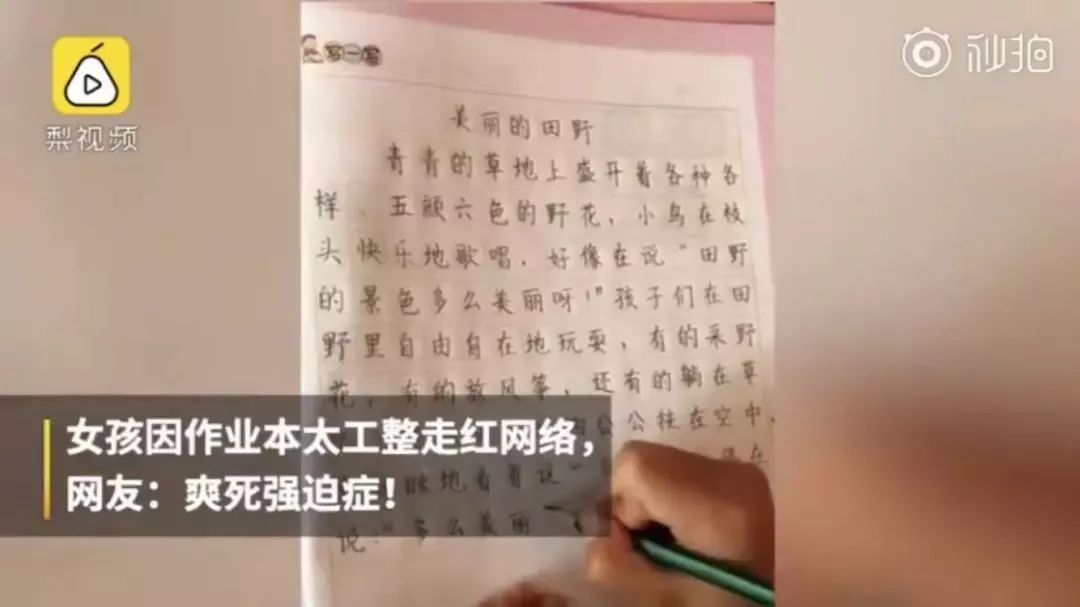 梨视频
秒拍
写一写
美丽的田野
青青的草地上盛开着各种各
样、五颜六色的野花，小鸟在枝
头快乐地歌唱，好像在说“田野
的景色多么美丽呀！”孩子们在田
野里自由自在地玩耍，有的采野
花，有的放风筝，还有的躺在草
公公挂在空中，
眯地看着这
说：“多么美丽
女孩因作业本太工整走红网络，
网友：爽死强迫症！